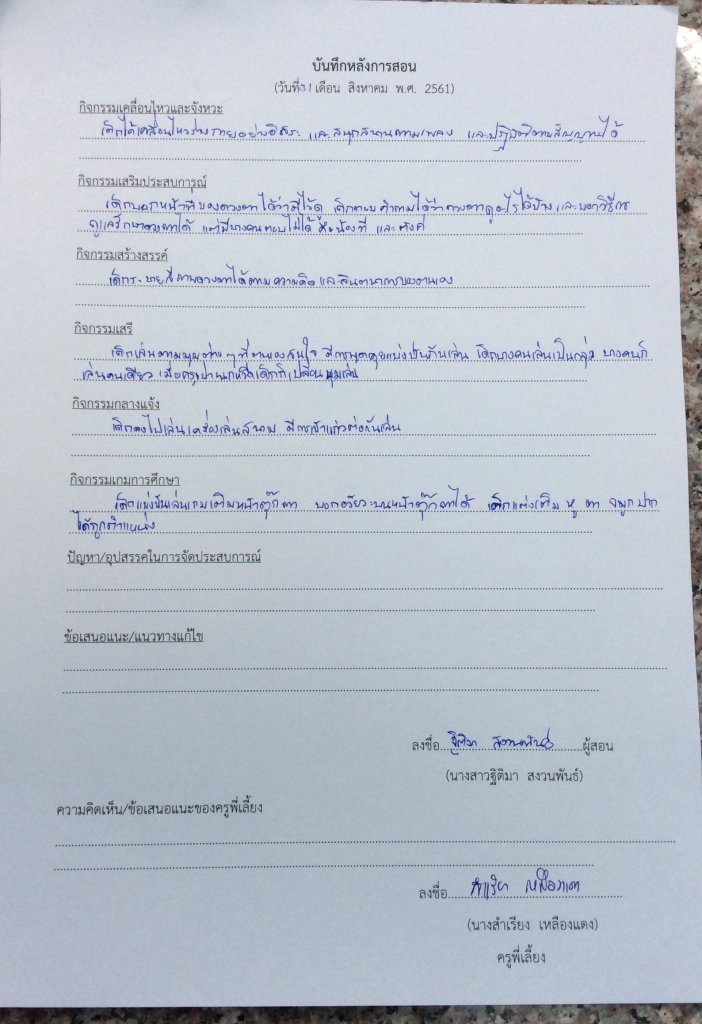 บันทึกหลังการสอน
(วันที่ 31 เดือน สิงหาคม พ.ศ. 2561)
กิจกรรมเคลื่อนไหวและจังหวะ
เด็กได้เคลื่อนไหวร่างกายอย่างอิสระ และสนุกสนานตามเพลง และปฏิบัติตามสัญญาณได้
กิจกรรมเสริมประสบการณ์
เด็กบอกหน้าที่ของดวงตาได้ว่ามีไว้ดู เด็กตอบคำถามได้ว่าดวงตาดูอะไรได้บ้าง และบอกวิธีการ
ดูแลรักษาดวงตาได้ แต่มีบางคนตอบไม่ได้ คือน้องที และ
กิจกรรมสร้างสรรค์
เด็กระบายสีภาพดวงตาได้ตามความคิดและจินตนาการของตนเอง
กิจกรรมเสรี
เด็กเล่นตามมุมต่างๆที่ตนเองสนใจ มีการพูดคุยแบ่งปันกันเล่น เด็กบางคนเล่นเป็นกลุ่ม บางคนก็
เล่นคนเดียว เมื่อครูเป่านกหวีดเด็กก็เปลี่ยนมุมเล่น
กิจกรรมกลางแจ้ง
เด็กลงไปเล่นเครื่องเล่นสนาม มีการเข้าแถวต่อกันเล่น
กิจกรรมเกมการศึกษา
เด็กแบ่งปันเล่นเกมเติมหน้าตุ๊กตา บอกอวัยวะบนหน้าตุ๊กตาได้ เด็กแต่งเติม หู ตา จมูก ปาก
ได้ถูกตำแหน่ง
ปัญหา/อุปสรรคในการจัดประสบการณ์
ข้อเสนอแนะ/แนวทางแก้ไข
ลงชื่อ ฐิติมา สงวนพันธ์ ผู้สอน
(นางสาวฐิติมา สงวนพันธ์)
ความคิดเห็น/ข้อเสนอแนะของครูพี่เลี้ยง
ลงชื่อ สำเรียง เหลืองแดง
(นางสำเรียง เหลืองแดง)
ครูพี่เลี้ยง